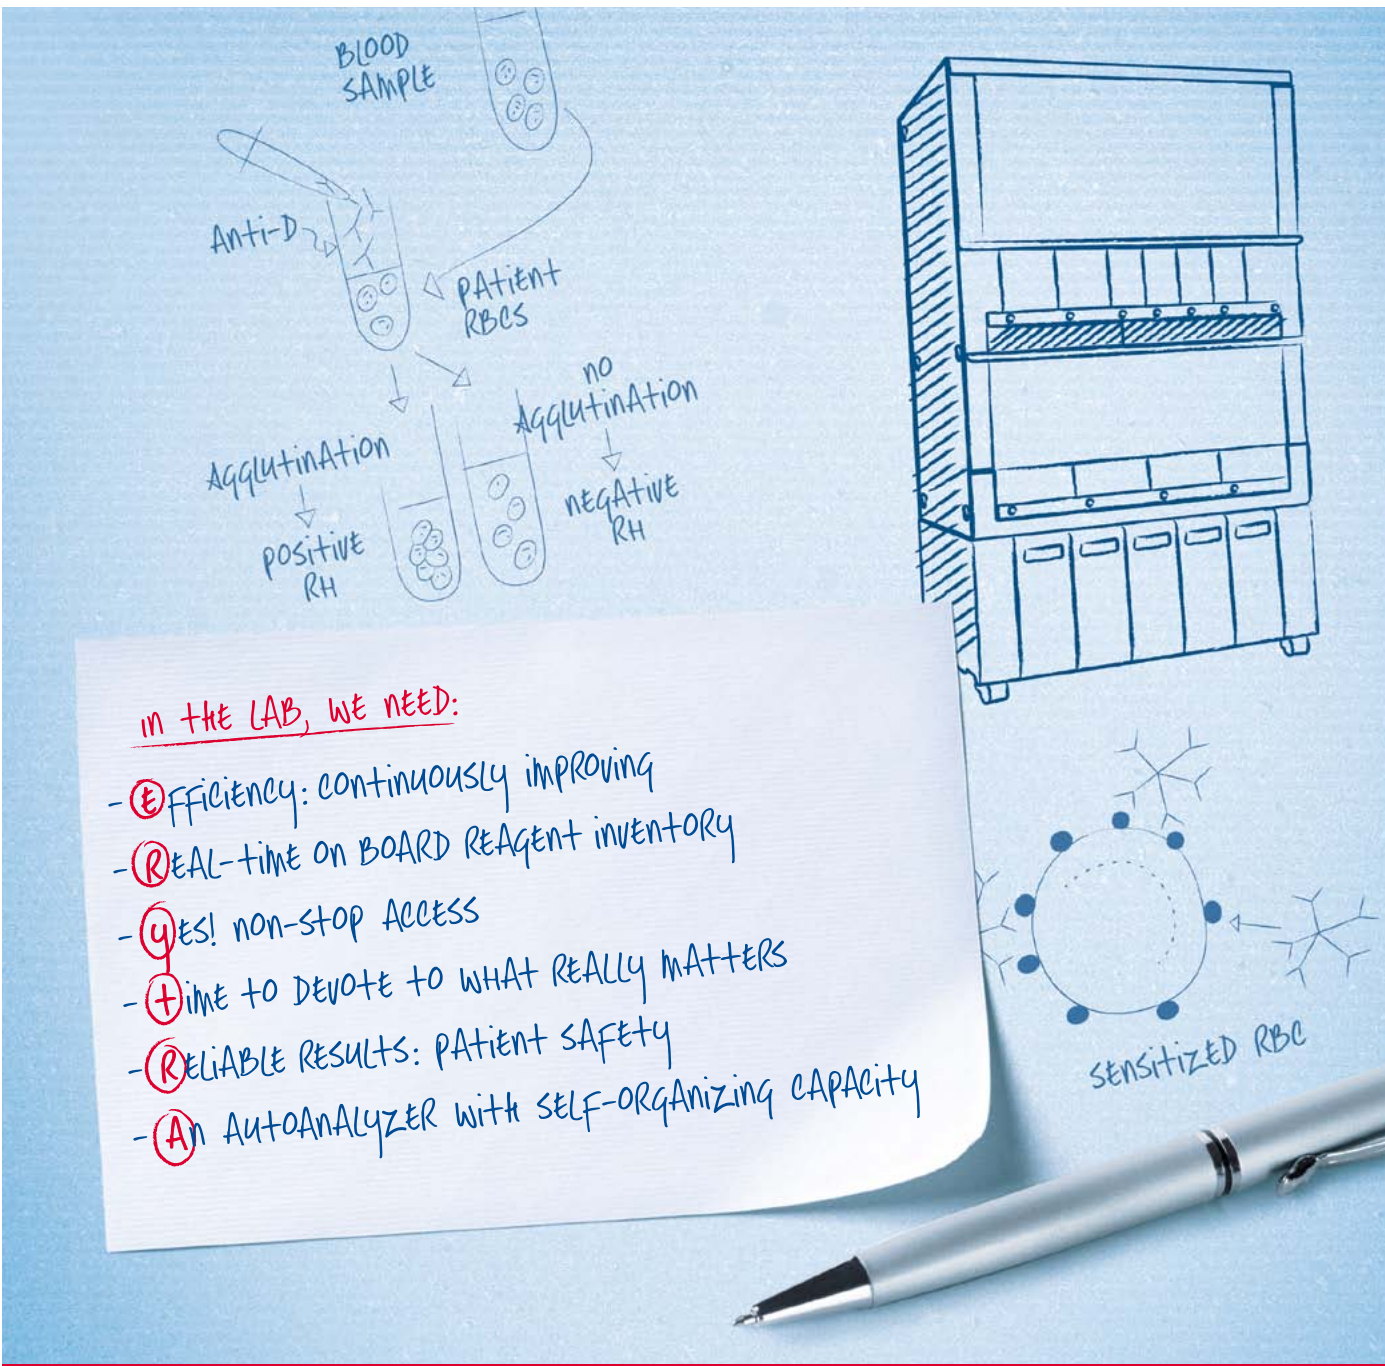 BLOOD
SAMPLE
Anti-D
PATIENT
RBCS
AGGLUTINATION
POSITIVE
RH
NO
AGGLUTINATION
NEGATIVE
RH
IN THE LAB, WE NEED:
- EFFICIENCY: CONTINUOUSLY IMPROVING
- REAL-TIME ON BOARD REAGENT INVENTORY
- YES! NON-STOP ACCESS
- TIME TO DEVOTE TO WHAT REALLY MATTERS
- RELIABLE RESULTS: PATIENT SAFETY
- AN AUTOANALYZER WITH SELF-ORGANIZING CAPACITY
SENSITIZED RBC